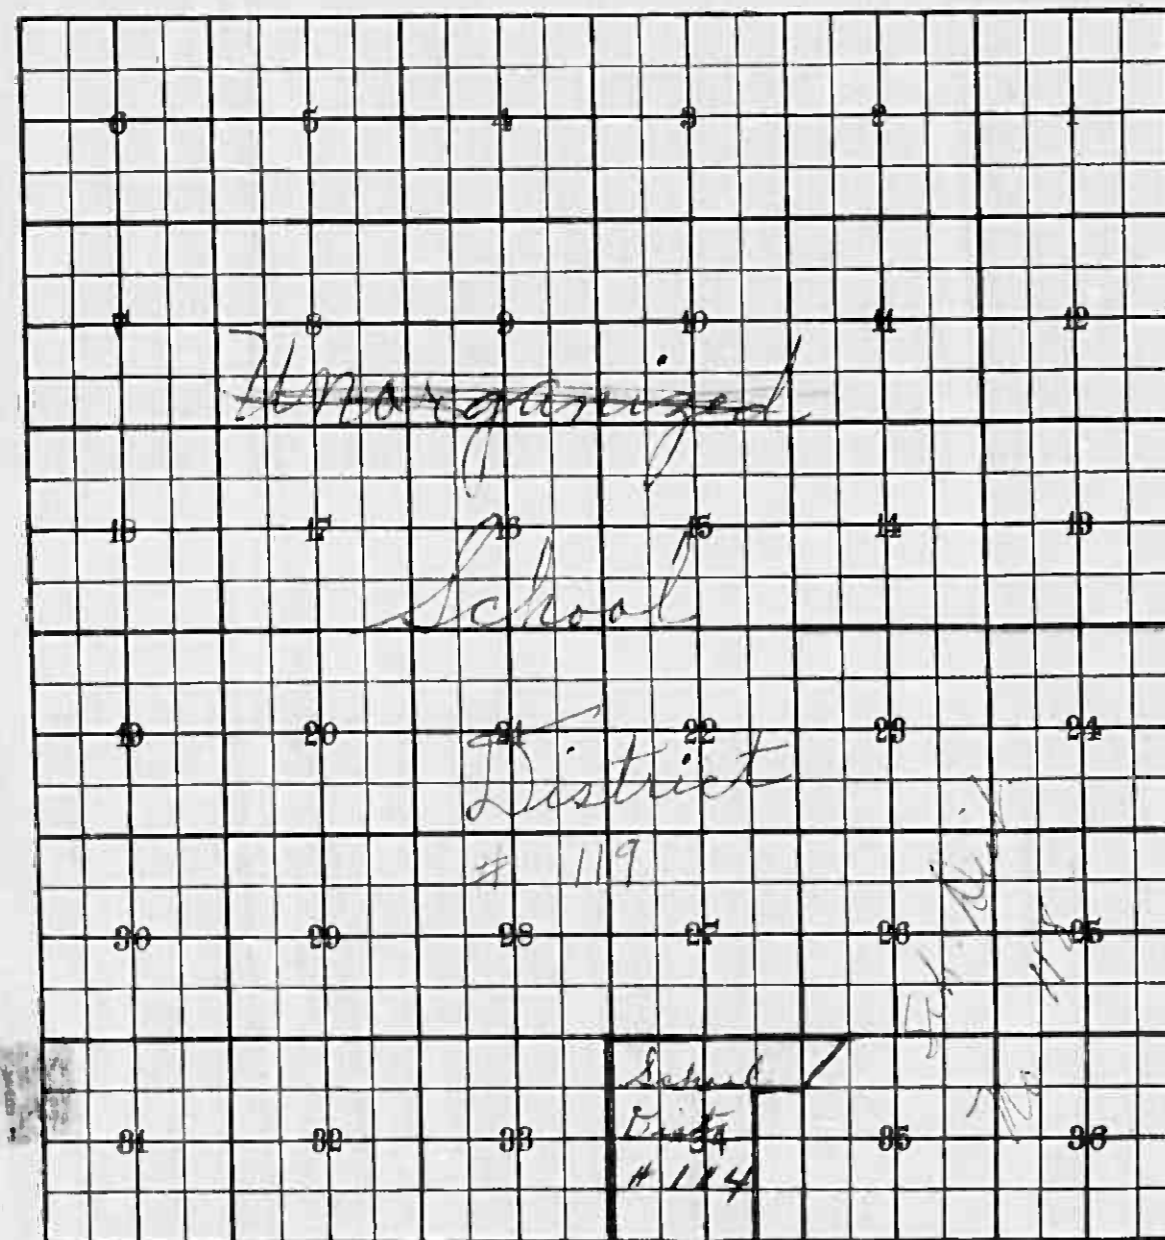 6 5 4 3 2 1
7 8 9 10 11 12
Unorganized
18 17 16 15 14 13
School
19 20 21 22 23 24
District
# 119
30 29 28 27 26 25
School
Dist
31 32 33 34 35 36
# 114
Sch.
No